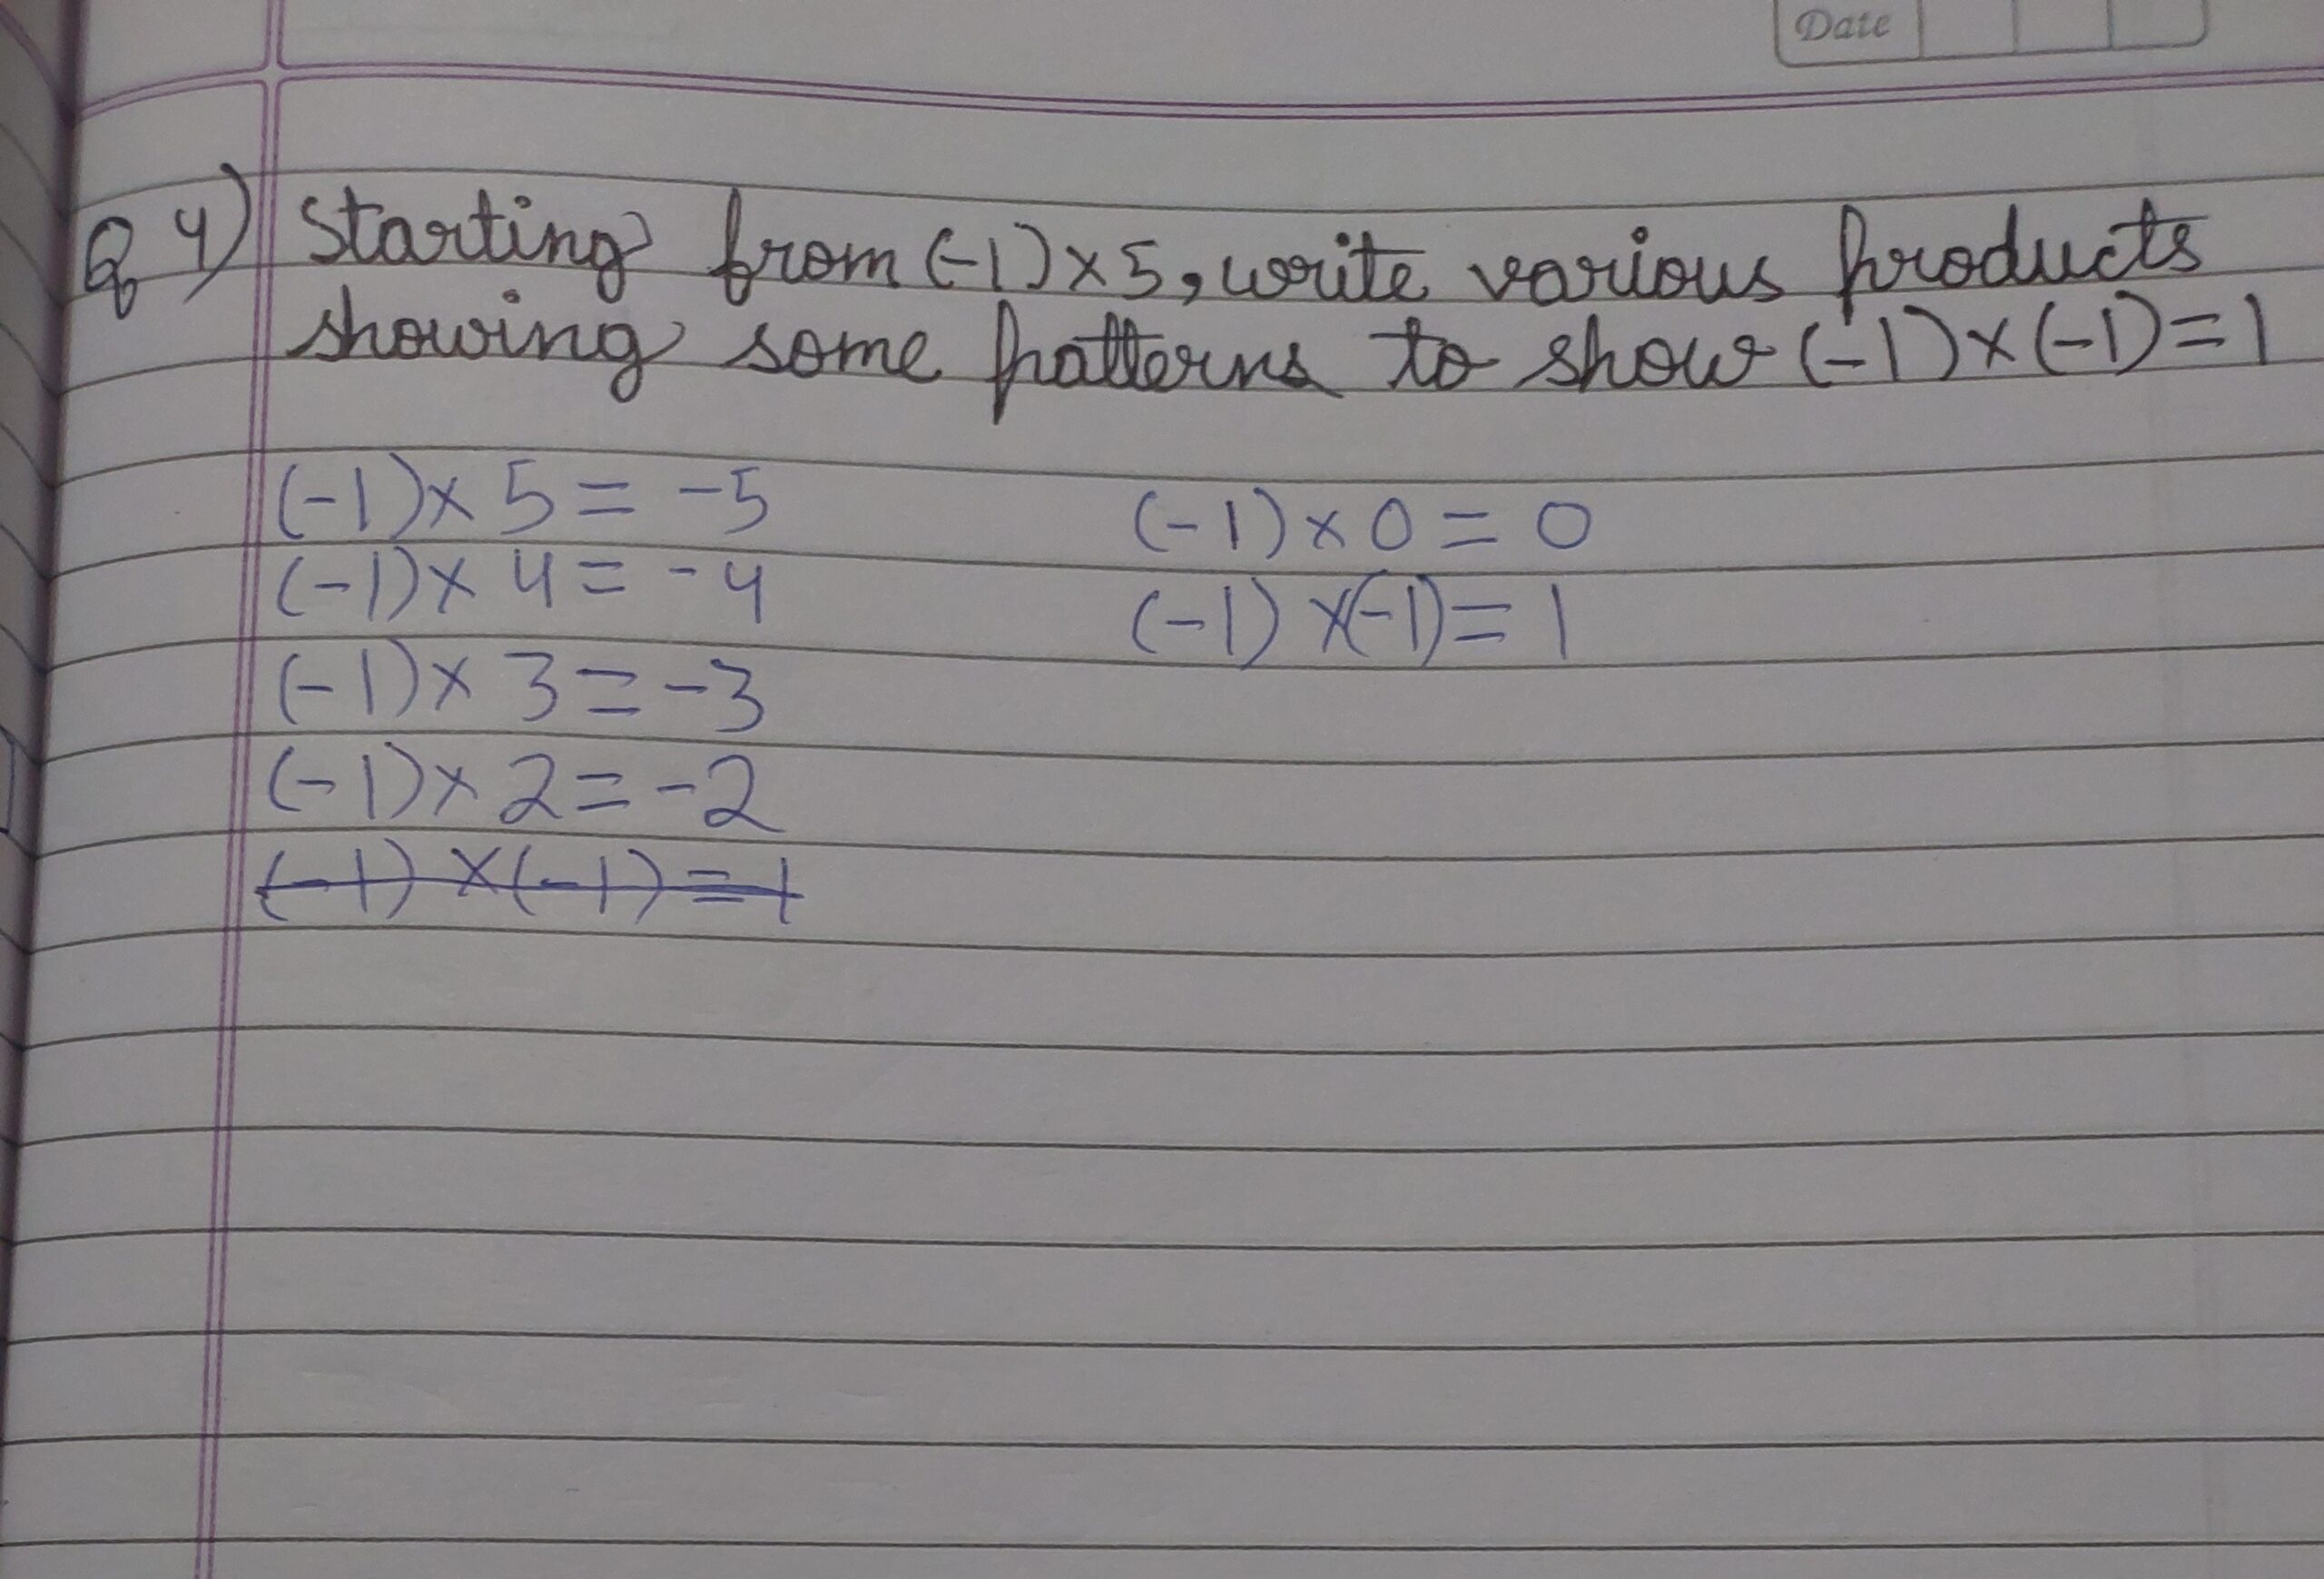 Date
Q 4) Starting from (-1) × 5, write various products
showing some patterns to show (-1) × (-1) = 1
(-1) × 5 = -5
(-1) × 4 = -4
(-1) × 3 = -3
(-1) × 2 = -2
(-1) × (-1) = 1
(-1) × 0 = 0
(-1) × (-1) = 1